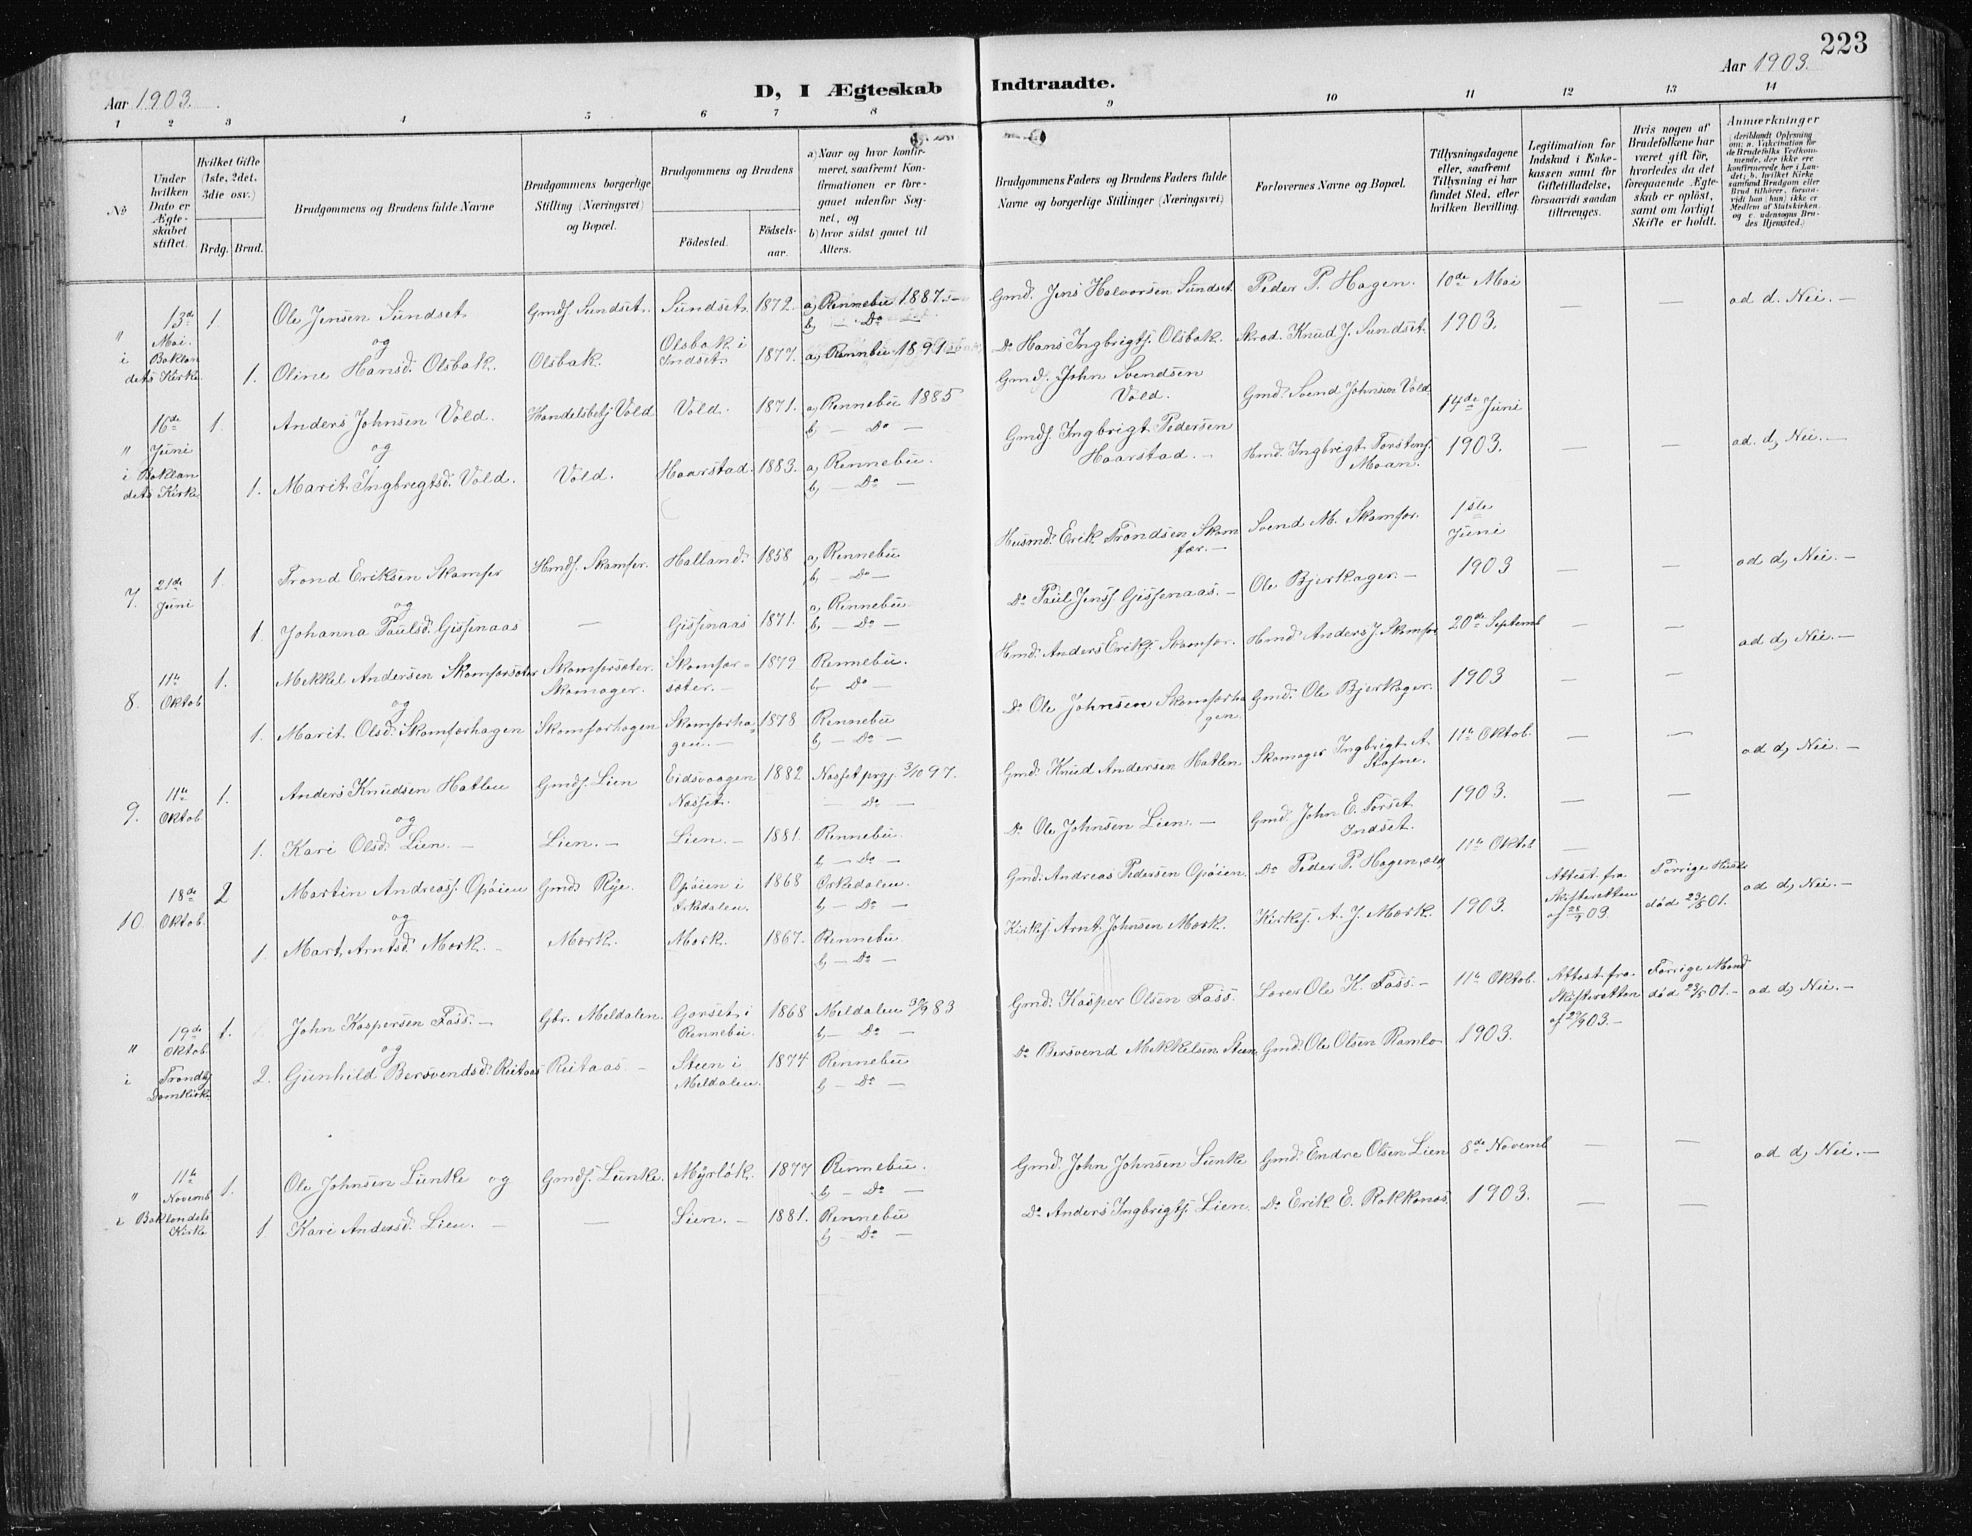 223
Aar 1903.
D, I Ægteskab Indtraadte.
Aar 1903.
1 2 3 4 5 6 7 8 9 10 11 12 13 14
No
Under hvilken Dato er Ægteskabet stiftet.
Hvilket Gifte (1ste, 2det, 3die osv.)
Brdg. Brud.
Brudgommens og Brudens fulde Navne
Brudgommens borgerlige Stilling (Næringsvei) og Bopæl.
Brudgommens og Brudens
Födested.
Födsels-aar.
a) Naar og hvor konfirmeret, saafremt Konfirmationen er foregaaet udenfor Sognet, og
b) hvor sidst gaaet til Alters.
Brudgommens Faders og Brudens Faders fulde Navne og borgerlige Stillinger (Næringsvei)
Forlovernes Navne og Bopæl.
Tillysningsdagene eller, saafremt Tillysning ei har fundet Sted, efter hvilken Bevilling.
Legitimation for Indskud i Enkekassen samt for Giftetilladelse, forsaavidt saadan tiltrænges.
Hvis nogen af Brudefolkene har været gift för, hvorledes da det foregaaende Ægteskab er oplöst, samt om lovligt Skifte er holdt.
Anmærkninger
(deriblandt Oplysning om: a. Vakcination for de Brudefolks Vedkommende, der ikke ere konfirmerede her i Landet; b. hvilket Kirkesamfund Brudgom eller Brud tilhörer, forsaavidt han (hun) ikke er Medlem af Statskirken, og c. udensogns Brudes Hjemsted.)
" 13de Mai i Baklandets Kirke. 1 Ole Jensen Sundset Gmds. Sundset. Sundset. 1872. a) Rennebu 1887.– b) – Do – Gmd. Jens Halvorsen Sundset Peder P. Hagen. 10de Mai — — ad d. Nei. –
og
1. Oline Hansd. Olsbak. Olsbak. Olsbak i Indset. 1877. a) Rennebu 1891 Do Hans Ingbrigts. Olsbak. Skrad. Knud J. Sundset. 1903.
" 16de Juni i Baklandets Kirke 1. Anders Johnsen Vold. Handelsbetj. Vold Vold. 1871. a) Rennebu 1885 b) – Do – Gmd. John Svendsen Vold. Gmd. Svend Johnsen Vold 14de Juni — — ad. d, Nei. –
og
1. Marit Ingbrigtsd. Vold. Vold. Haarstad. 1883. a) Rennebu. b) – Do – Gmds. Ingbrigt Pedersen Haarstad. – Hmd. Ingbrigt Torstens. Moan. 1903.
7. 21de Juni 1. Trond Eriksen Skamfer Hmds. Skamfer. Halland. 1858 a) Rennebu b) – Do – Husmd. Erik Trondsen Skamfær. – Svend M. Skamfer. 1ste Juni — — ad d, Nei. –
og
1. Johanna Paulsd. Gissenaas — Gissenaas 1871. a) Rennebu. b) – Do – Do Paul Jenss. Gissenaas. – Ole Bjerkager. – 1903
8. 11te Oktob 1. Mikkel Andersen Skamfersæter Skamfersæter. Skomager. Skamfersæter. – 1879 Rennebu. b) – Do – Hmd. Anders Eriks. Skamfer. Hmd. Anders J. Skamfer 20de Septemb — — ad d, Nei. –
og
1. Marit Olsd. Skamferhagen Skamferhagen Skamferhagen. – 1878 Rennebu b) – Do – Do Ole Johnsen Skamferhagen Gmd. Ole Bjerkager. 1903 — —
9. 11te Oktob 1. Anders Knudsen Hatlen Gmds. Lien Eidsvaagen Nasset. 1882 Nasset prgj. 3/10 97. – Do – Gmd. Knud Andersen Hatlen Skomager Ingbrigt A. Stafne. 11te Oktob. — — ad d, Nei. –
og
1. Kari Olsd. Lien. – Lien. – Lien. – 1881. Rennebu. b) – Do – Do Ole Johnsen Lien. – Gmd. John E. Forset Indset. 1903. — —
10. 18de Oktob. 2 Martin Andreass. Opøien Gmd. Rye. Opøien i Orkedalen. 1868 Orkedalen. b) – Do – Gmd. Andreas Pedersen Opøien. Do Peder P. Hagen, 11te Oktob Attest fra Skifteretten af 28/9 03. Forrige Hustru død 23/5 01. ad d, Nei. –
og
1. Marit Arntsd. Mærk. – Mærk. Mærk. 1867. Rennebu. b) – Do – Kirkes. Arnt Johnsen Mærk. Kirkes. A. J. Mærk. 1903.
" 19de Oktob. i Trondhj Domkirke 1. John Kaspersen Fass. – Gbr. Meldalen. Gorset i Rennebu. 1868 Meldalen 30/9 83 b) – Do – Gmd. Kasper Olsen Fass. Lærer Ole K. Fass. – 11te Oktob. Attest fra Skifteretten af 29/9 03. – Forrige Mand død 23/5 01. – ad d, Nei. –
og
2. Gunhild Bersvendsd. Reitaas Reitaas. – Steen i Meldalen. 1874 Rennebu b) – Do – Do Bersvend Mikkelsen Steen. Gmd. Ole Olsen Ramlo 1903.
" 11te Novemb i Baklandets Kirke 1. Ole Johnsen Lunke og Gmds. Lunke. Myrløk. 1877 Rennebu. b) – Do – Gmd. John Johnsen Lunke Gmd. Endre Olsen Lien 8de Novemb — — ad d, Nei. –
1. Kari Andersd. Lien. – — Lien. – 1881. Rennebu b) – Do – Do Anders Ingbrigts. Lien. Do Erik E. Rokkones. 1903. — —